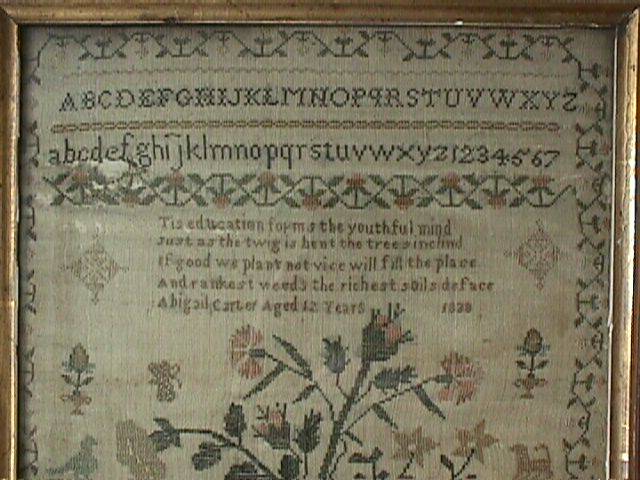 ABCDEFGHIJKLMNOPQRSTUVWXYZ
abcdefghijklmnopqrstuvwxyz1234567
Tis education forms the youthful mind
Just as the twig is bent the trees inclind
If good we plant not vice will fill the place
And rankest weeds the richest soils deface
Abigail Carter Aged 12 Years 1828